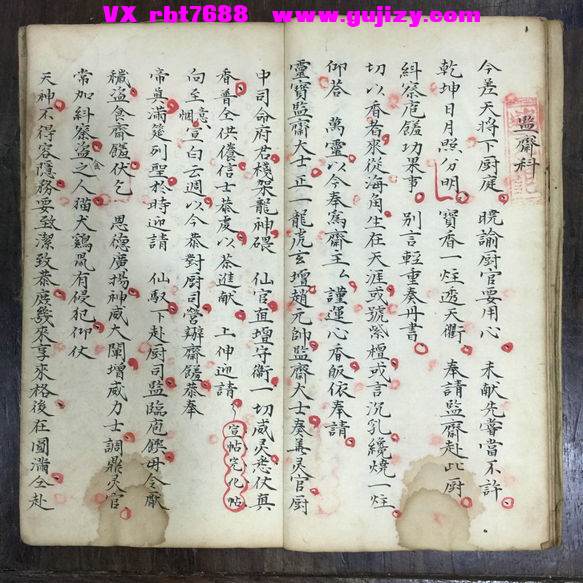 VX rbt7688 www.gujizy.com
監齋科
今差天將下厨庭 曉諭厨官要用心 未献先嘗當不許
乾坤日月照分明 寶香一炷透天衢 奉請監齋赴此厨
糾察庖饈功果事 別言輕重奏丹書
切以香者來從海角生在天涯或號紫檀或言沉乳纔燒一炷
仰答 萬靈以今奉為齋主厶謹運心香皈依奉請
靈寶監齋大士正一龍虎玄壇趙元帥監齋大士奏善灵官厨
中司命府君棧架龍神礠 仙官直壇守衛一切威灵悉伏真
香普全供儀信士恭虔以茶進献 上伸迎請 宣帖完化帖
向至意宣白云週以今恭對厨司营辦齋饈恭奉
帝真滿筵列聖於時迎請 仙馭下赴厨司監臨庖饌毋令厭
穢盗食齋饈伏乞 恩德廣揚神威大闡增威力士調鼎灵官
常加糾察盗食之人猫犬鷄鼠有侵犯仰仗
天神不得容隱務要致潔致恭庶幾來享來格後在圓滿仝赴